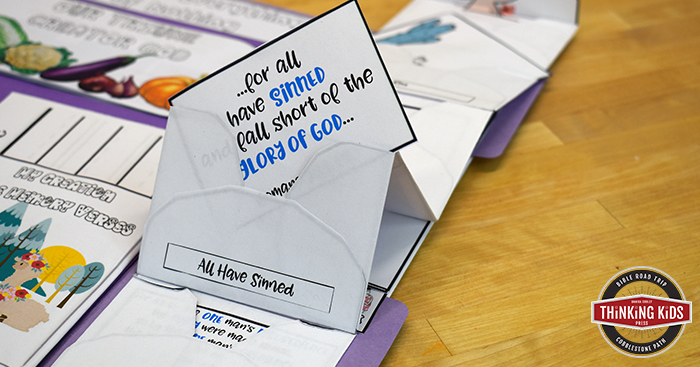 OUR TRIUNE
CREATOR GOD
MY CREATION
MEMORY VERSES
...for all
have SINNED
and fall short of the
GLORY OF GOD...
All Have Sinned
ONE man's
were ma
man's
BIBLE ROAD TRIP
DANIKA COOLEY
THiNKiNG KiDS
PRESS
COBBLESTONE PATH